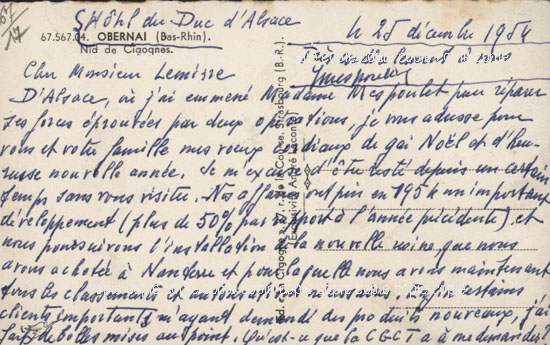 Hôtel du Duc d'Alsace
le 25 décembre 1954
67.567.04. OBERNAI (Bas-Rhin).
Nid de Cigognes.
Cher Monsieur Lemisre
D'Alsace, où j'ai emmené Madame Mespoulet pour réparer
ses forces éprouvées par deux opérations, je vous adresse pour
vous et votre famille mes voeux cordiaux de gai Noël et d'heu-
reuse nouvelle année. Je m'excuse d'être resté depuis un certain
temps sans vous visiter. Nos affaires ont pris en 1954 un important
développement (plus de 50% par rapport à l'année précédente) et
nous poursuivons l'installation de la nouvelle usine que nous
avons achetée à Nanterre et pour laquelle nous avons maintenant
tous les classements et autorisations nécessaires. Enfin certains
clients importants m'ayant demandé des produits nouveaux, j'ai
fait de belles mises au point. Qu'est-ce que la CGCT a à me demander ?